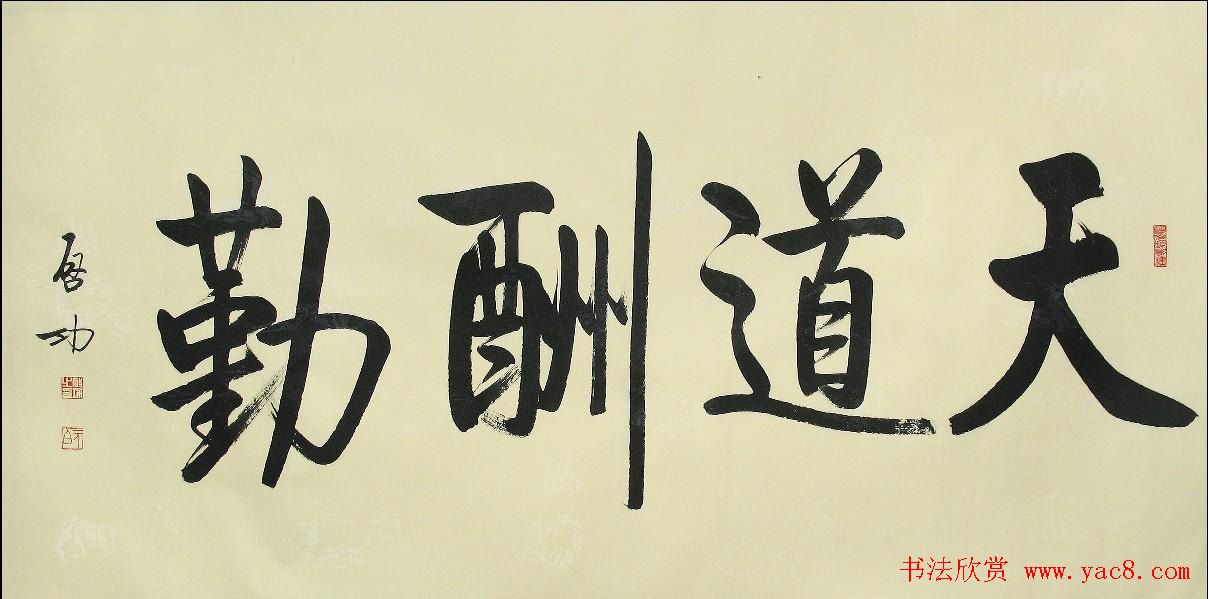 天道酬勤
启功
书法欣赏 www.yac8.com